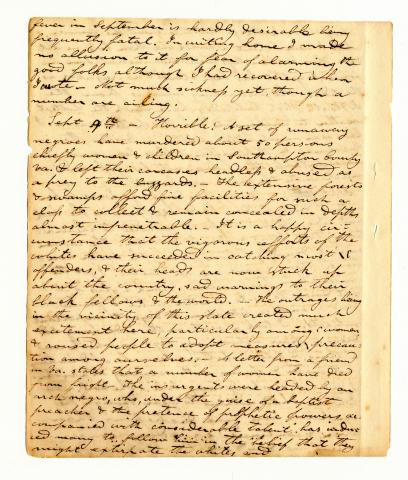 fever in September is hardly desirable being
frequently fatal. In writing home I made
no allusion to it for fear of alarming the
good folks although I had recovered when
I wrote – Not much sickness yet, though a
number are ailing.
Sept 9th – Horrible! A set of runaway
negroes have murdered about 50 persons
chiefly women & children in Southampton County
Va. & left their carcases headless & abused as
a prey to the buzzards. – The extensive forests
& swamps afford fine facilities for such a
class to collect & remain concealed in depths
almost impenetrable. – It is a happy cir-
cumstance that the vigorous efforts of the
whites have succeeded in catching most of
offenders, & their heads are now stuck up
about the country, sad warnings to their
black fellows & the world. – The outrages being
in the vicinity of this state created much
excitement here, particularly among women
& roused people to adopt measures precau-
tion among ourselves. – A letter from a friend
in Va. states that a number of women have died
from fright. The insurgents were headed by an
negro, who, under the guise of a baptist
preacher & the pretence of prophetic powers, ac
companied with considerable talent, has induc
ed many to follow in the belief that they
might extirpate the whites and